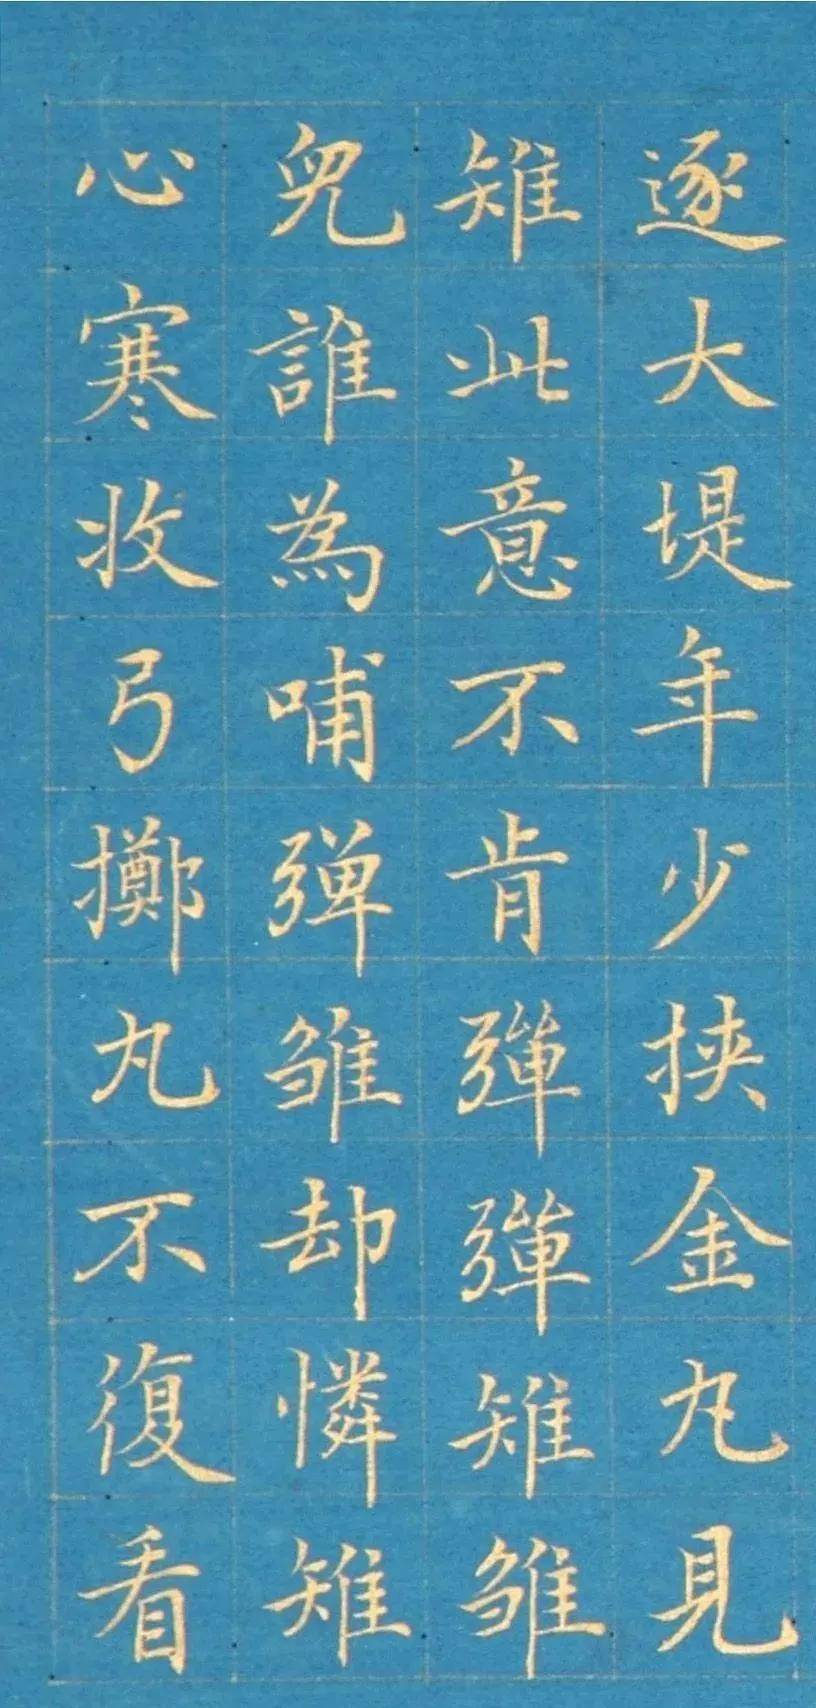 逐大堤年少挟金丸見
雉此意不肯彈彈雉雛
兒誰為哺弾雛却憐雉
心寒收弓擲丸不復看